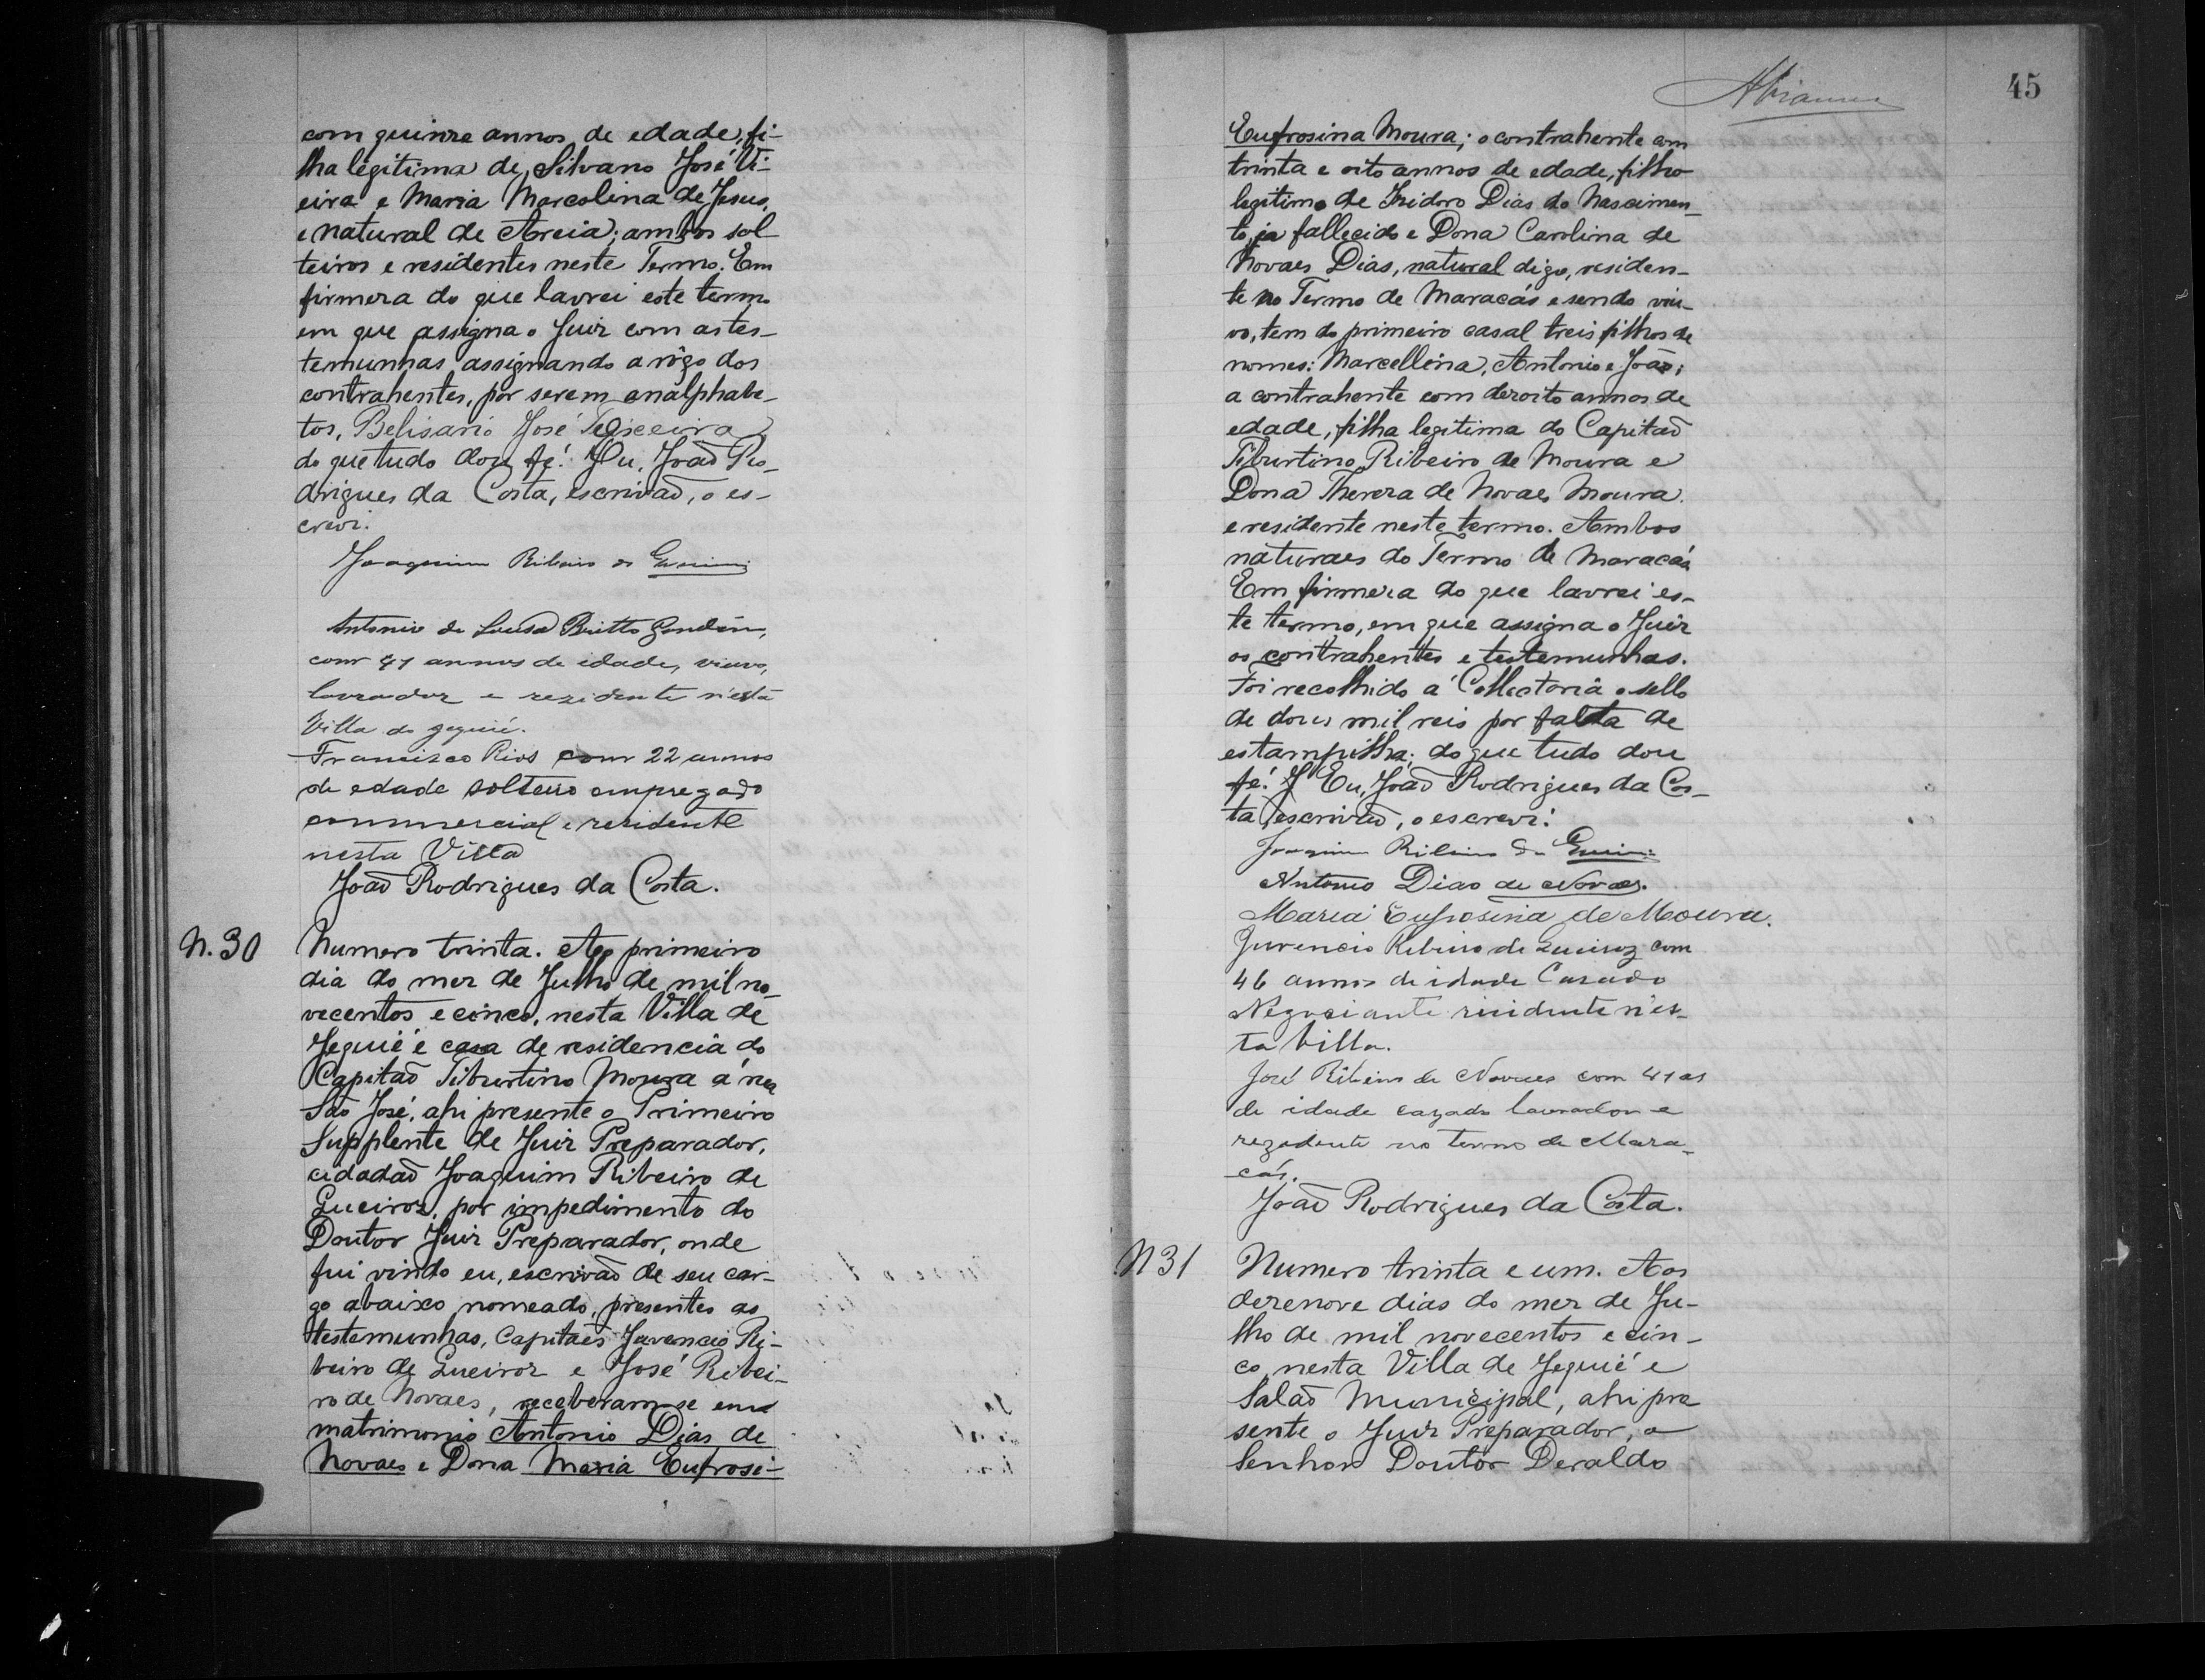 com quinze annos de edade, fi-
lha legitima de Silvano José Vi-
eira e Maria Marcolina de Jesus,
e natural de Areia; ambos sol
teiros e residentes neste Termo. Em
firmeza do que lavrei este termo
em que assigna o Juiz com as tes-
temunhas assignando a rôgo dos
contrahentes, por serem analphabe-
tos, Belisario José Teixeira
do que tudo dou fé. Eu, João Ro-
drigues da Costa, escrivão, o es-
crevi.
Joaquim Ribeiro de Queiroz
Antonio de Sousa Britto Gondim,
com 41 annos de idade, viuvo,
lavrador e rezidente n'esta
Villa de Jequié.
Francisco Rios com 22 annos
de edade solteiro empregado
commercial e residente
nesta Villa
João Rodrigues da Costa.
N. 30
Numero trinta. Ao primeiro
dia do mez de Julho de mil no-
vecentos e cinco, nesta Villa de
Jequié e casa de residencia do
Capitão Tiburtino Moura á rua
São José, ahi presente o Primeiro
Supplente de Juiz Preparador,
cidadão Joaquim Ribeiro de
Queiroz, por impedimento do
Doutor Juiz Preparador, onde
fui vindo eu, escrivão de seu car-
go abaixo nomeado, presentes as
testemunhas, Capitães Juvencio Ri-
beiro de Queiroz e José Ribei-
ro de Novaes, receberam-se em
matrimonio Antonio Dias de
Novaes e Dona Maria Eufrosi-
45
Eufrosina Moura; o contrahente com
trinta e oito annos de edade, filho
legitimo de Izidoro Dias do Nascimen-
to, ja fallecido e Dona Carolina de
Novaes Dias, natural digo, residen-
te no Termo de Maracás e sendo viu-
vo, tem do primeiro casal treis filhos de
nomes: Marcellina, Antonio e João;
a contrahente com dezoito annos de
edade, filha legitima do Capitão
Tiburtino Ribeiro de Moura e
Dona Thereza de Novaes Moura.
e residente neste termo. Ambos
naturaes do Termo de Maracás
Em firmeza do que lavrei es-
te termo, em que assigna o Juiz
os contrahentes e testemunhas.
Foi recolhido á Collectoria o sello
de dous mil reis por falta de
estampilha; do que tudo dou
fé. Eu, João Rodrigues da Cos-
ta, escrivão, o escrevi.
Joaquim Ribeiro de Queiroz
Antonio Dias de Novaes.
Maria Eufrosina de Moura.
Juvencio Ribeiro de Queiroz com
46 annos de idade Casado
Negociante risidente n'es-
ta Villa.
José Ribeiro de Novaes com 41 as
de idade cazado lavrador e
rezidente no termo de Mara-
cás.
João Rodrigues da Costa.
N 31
Numero trinta e um. Aos
dezenove dias do mez de Ju-
lho de mil novecentos e cin-
co, nesta Villa de Jequié e
Salão Municipal, ahi pre
sente o Juiz Preparador, o
Senhor Doutor Deraldo